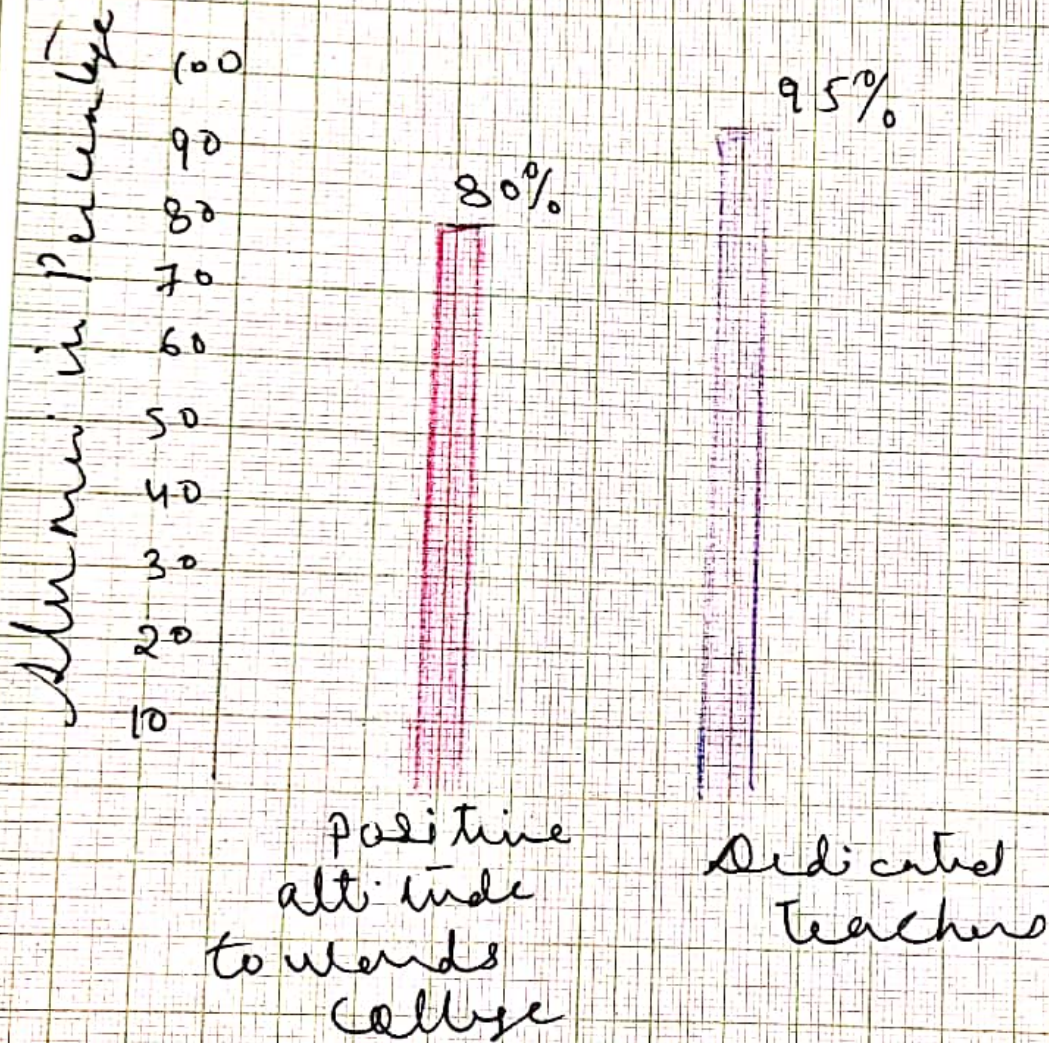 Alumni in Percentage
100
90
80
70
60
50
40
30
20
10
80%
95%
positive
attitude
towards
college
Dedicated
Teachers